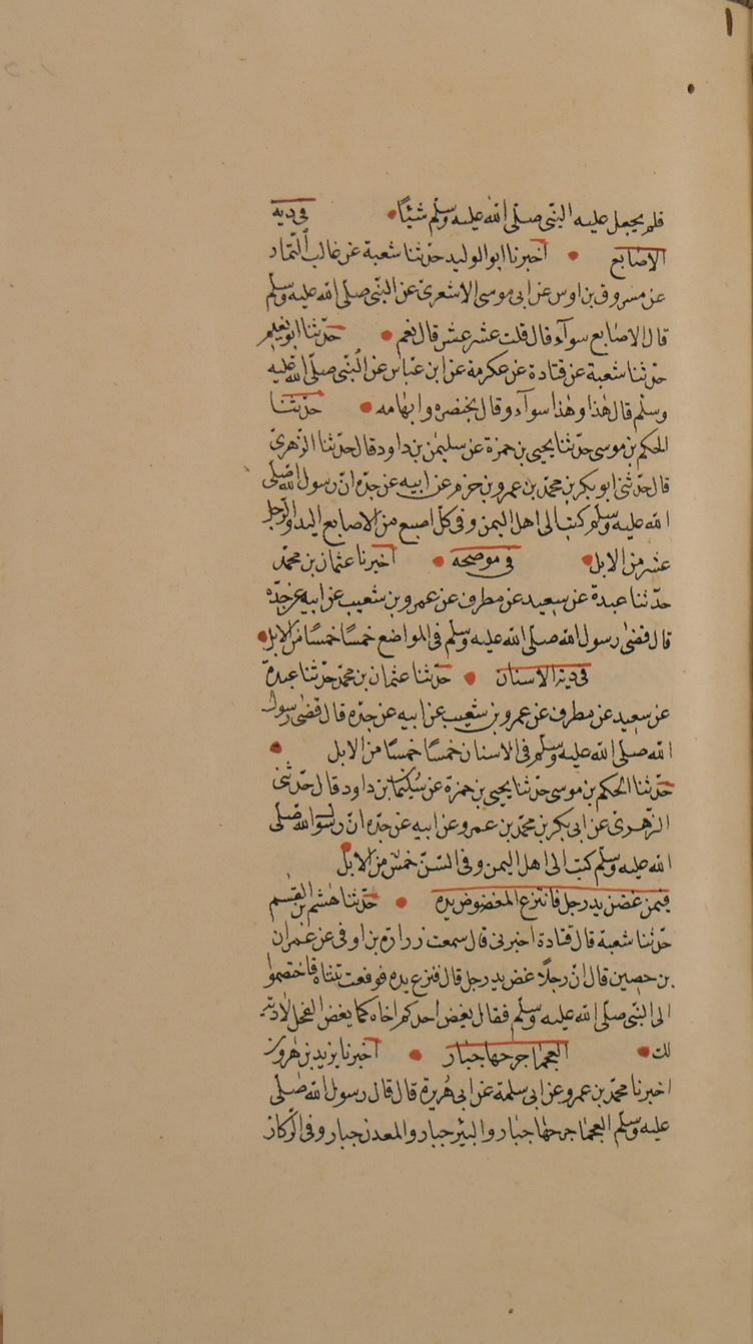 فلم يجعل عليه النبي صلى الله عليه وسلم شيئًا • في دية
الاصابع • اخبرنا ابو الوليد حدثنا شعبة عن غالب التمار
عن مسروق بن اوس عن ابي موسى الاشعري عن النبي صلى الله عليه وسلم
قال الاصابع سوآء قال قلت عشر عشر قال نعم • حدثنا ابو نعيم
حدثنا شعبة عن قتادة عن عكرمة عن ابن عباس عن النبي صلى الله عليه
وسلم قال هذا وهذا سوآء وقال بخنصره وابهامه • حدثنا
الحكم بن موسى حدثنا يحيى بن حمزة عن سليمن بن داود قال حدثنا الزهري
قال حدثني ابو بكر بن محمد بن عمرو بن حزم عن ابيه عن جده ان رسول الله صلى
الله عليه وسلم كتب الى اهل اليمن وفي كل اصبع من الاصابع اليد والرجل
عشر من الابل • في موضحه • اخبرنا عثمان بن محمد
حدثنا عبدة عن سعيد عن مطرف عن عمرو بن شعيب عن ابيه عن جده
قال قضى رسول الله صلى الله عليه وسلم في المواضع خمسًا خمسًا من الابل •
في دية الاسنان • حدثنا عثمان بن محمد حدثنا عبدة
عن سعيد عن مطرف عن عمرو بن شعيب عن ابيه عن جده قال قضى رسول
الله صلى الله عليه وسلم في الاسنان خمسًا خمسًا من الابل •
حدثنا الحكم بن موسى حدثنا يحيى بن حمزة عن سليمان بن داود قال حدثني
الزهري عن ابي بكر بن محمد بن عمرو عن ابيه عن جده ان رسول الله صلى
الله عليه وسلم كتب الى اهل اليمن وفي السن خمس من الابل •
فيمن عض يد رجل فانتزع المعضوض يده • حدثنا هشم بن القسم
حدثنا شعبة قال قتادة اخبرني قال سمعت زرارة بن اوفى عن عمران
بن حصين قال ان رجلًا عض يد رجل قال فنزع يده فوقعت ثنتاه فاختصموا
الى النبي صلى الله عليه وسلم فقال يعض احدكم اخاه كما يعض الفحل لا دية
لك • العجما جرحها جبار • اخبرنا يزيد بن هرون
اخبرنا محمد بن عمرو عن ابي سلمة عن ابي هريرة قال قال رسول الله صلى
عليه وسلم العجما جرحها جبار والبئر جبار والمعدن جبار وفي الركاز